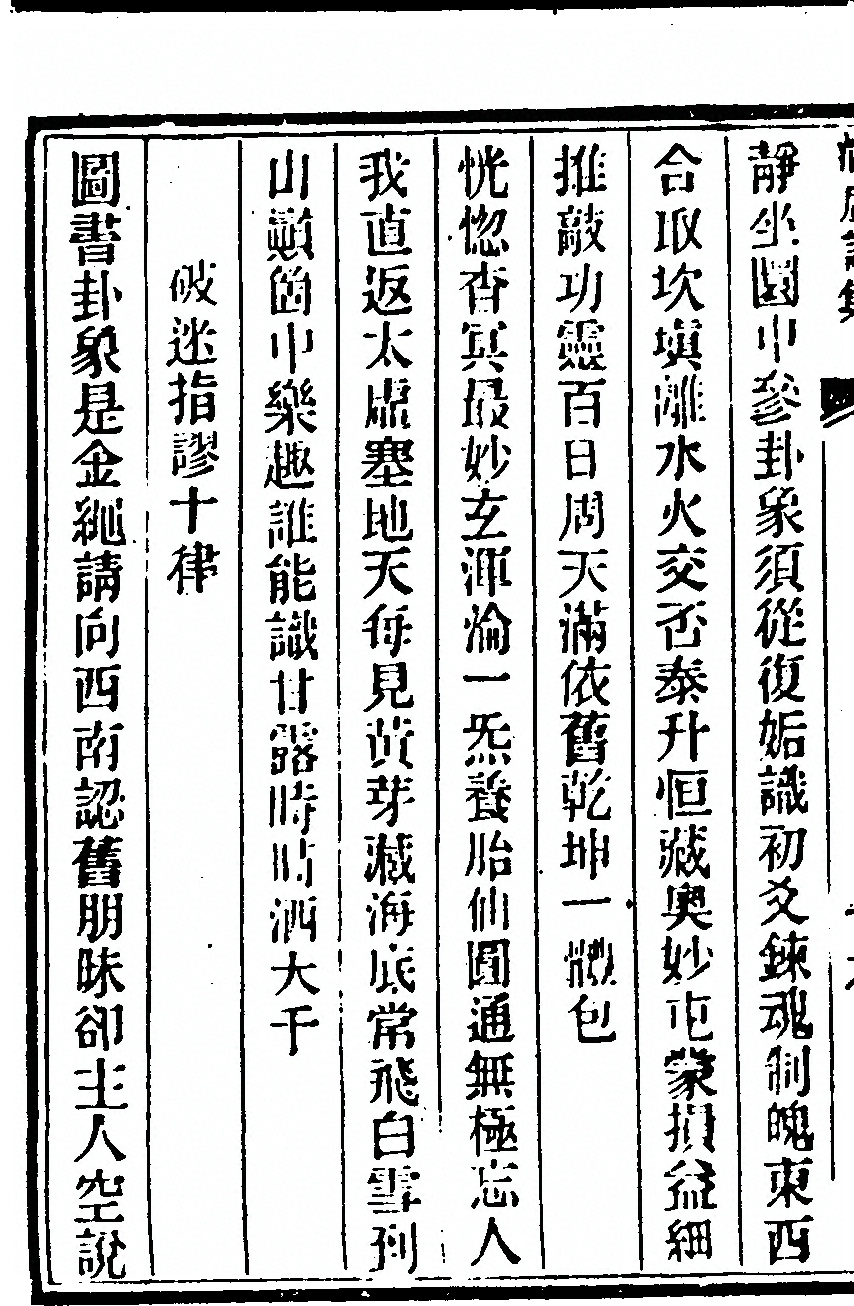 靜坐圜中參卦象須從復姤識初爻鍊魂制魄東西
合取坎塡離水火交否泰升恒藏奧妙屯蒙損益細
推敲功靈百日周天滿依舊乾坤一橐包
恍惚杳冥最妙玄渾淪一炁養胎仙圓通無極忘人
我直返太虛塞地天每見黃芽藏海底常飛白雪到
山巔箇中樂趣誰能識甘露時時洒大千
破迷指謬十律
圖書卦象是金繩請向西南認舊朋昧卻主人空說